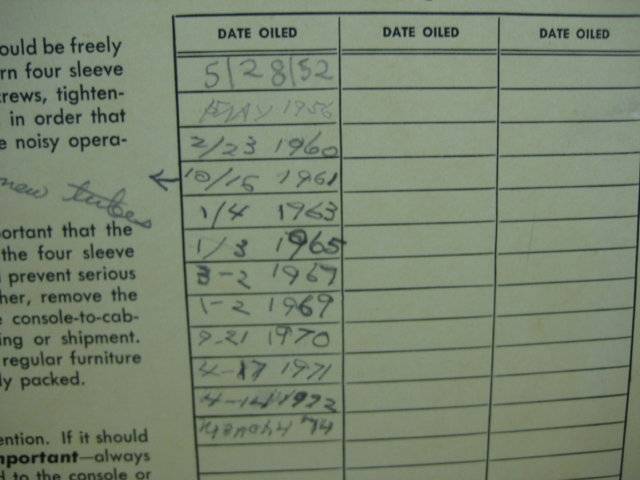 DATE OILED DATE OILED DATE OILED
ould be freely
rn four sleeve
crews, tighten-
in order that
e noisy opera-
new tubes
portant that the
the four sleeve
prevent serious
her, remove the
console-to-cab-
ing or shipment.
regular furniture
ly packed.
ention. If it should
mportant—always
d to the console or
5/28/52
MAY 1956
2/23 1960
10/16 1961
1/4 1963
1/3 1965
3-2 1967
1-2 1969
9-21 1970
4-17 1971
4-14 1972
March 4 '74